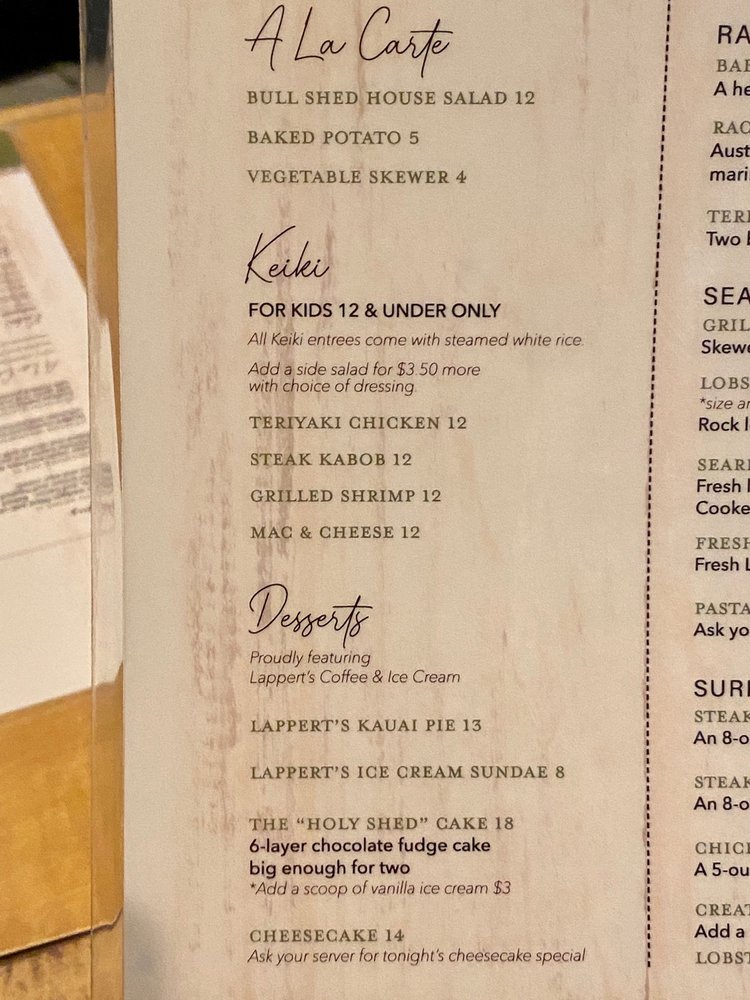 A La Carte
BULL SHED HOUSE SALAD 12
BAKED POTATO 5
VEGETABLE SKEWER 4
Keiki
FOR KIDS 12 & UNDER ONLY
All Keiki entrees come with steamed white rice.
Add a side salad for $3.50 more
with choice of dressing.
TERIYAKI CHICKEN 12
STEAK KABOB 12
GRILLED SHRIMP 12
MAC & CHEESE 12
Desserts
Proudly featuring
Lappert's Coffee & Ice Cream
LAPPERT'S KAUAI PIE 13
LAPPERT'S ICE CREAM SUNDAE 8
THE "HOLY SHED" CAKE 18
6-layer chocolate fudge cake
big enough for two
*Add a scoop of vanilla ice cream $3
CHEESECAKE 14
Ask your server for tonight's cheesecake special
A
Two
Fresh
Fresh
Ask
An
An
A
Add a